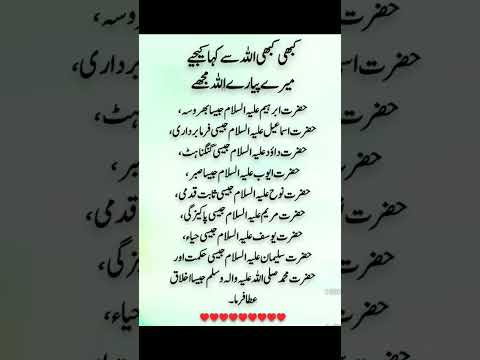 کبھی کبھی اللہ سے کہا کیجیے
میرے پیارے اللہ مجھے
حضرت ابرہیم علیہ السلام جیسا بھروسہ،
حضرت اسماعیل علیہ السلام جیسی فرمابرداری،
حضرت داؤد علیہ السلام جیسی گنگناہٹ،
حضرت ایوب علیہ السلام جیسا صبر،
حضرت نوح علیہ السلام جیسی ثابت قدمی،
حضرت مریم علیہ السلام جیسی پاکیزگی،
حضرت یوسف علیہ السلام جیسی حیاء،
حضرت سلیمان علیہ السلام جیسی حکمت اور
حضرت محمد صلی اللہ علیہ والہ وسلم جیسا اخلاق
عطا فرما۔